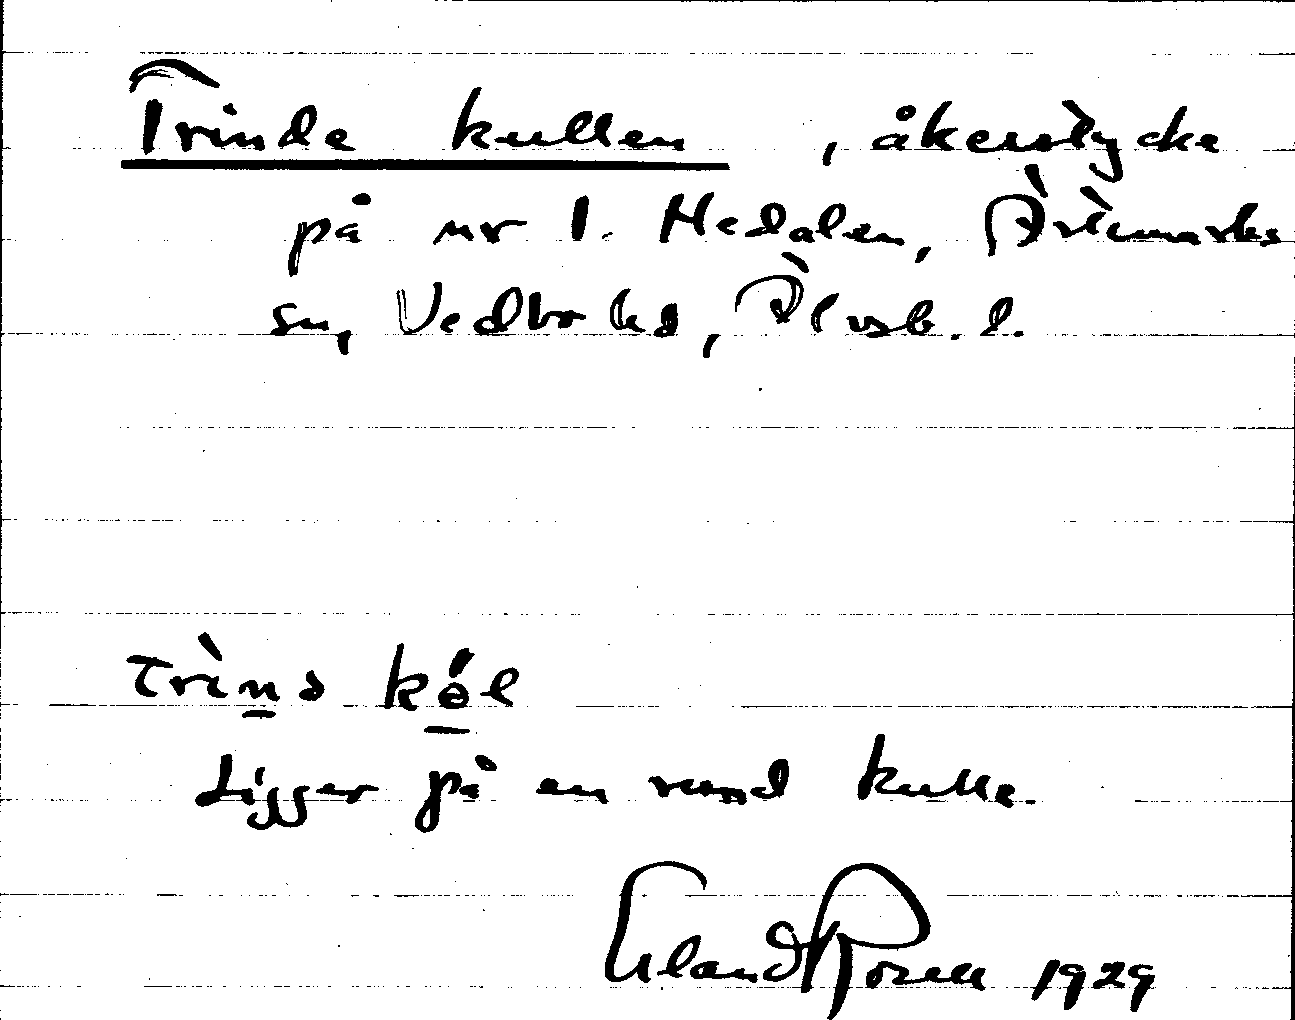 Trinde kullen, åkerstycke
på nr 1. Hedalen, Ärtemarks
sn, Vedbo hd, Älvsb. l.
trìn̲d kө̲́l
Ligger på en rund kulle.
Erland Rosell 1929